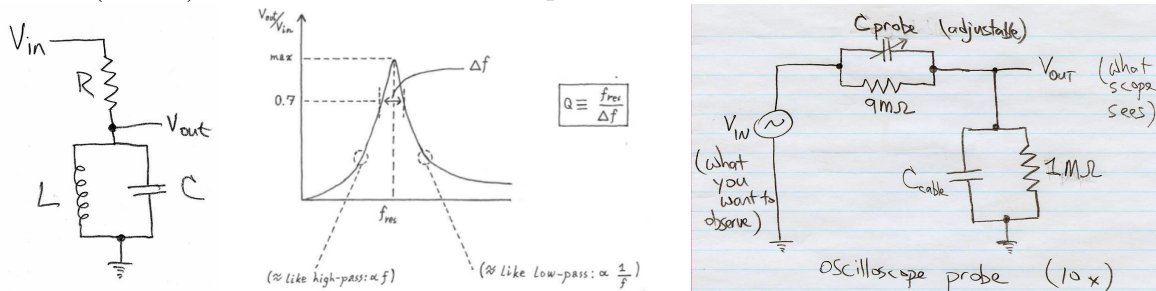 V_in
R
V_out
L
C
V_out/V_in
max
0.7
Δf
f_res
Q ≡ f_res/Δf
(≈ like high-pass: α f)
(≈ like low-pass: α 1/f)
C_probe (adjustable)
9MΩ
V_OUT (what scope sees)
V_IN
(what
you
want to
observe)
C_cable
1MΩ
oscilloscope probe (10x)